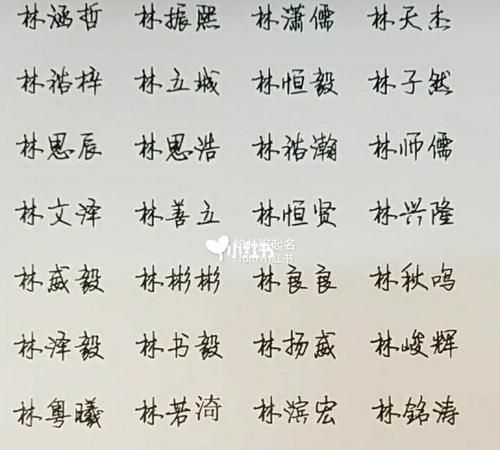 林涵哲 林振熙 林潇儒 林天杰
林禘梓 林立城 林恒毅 林子然
林思辰 林思浩 林禘瀚 林师儒
林文泽 林善立 林恒贤 林兴隆
小红书
From小红书
林威毅 林彬彬 林良良 林秋鸣
林泽毅 林书毅 林扬威 林峻辉
林粤曦 林若渏 林滨宏 林銘涛